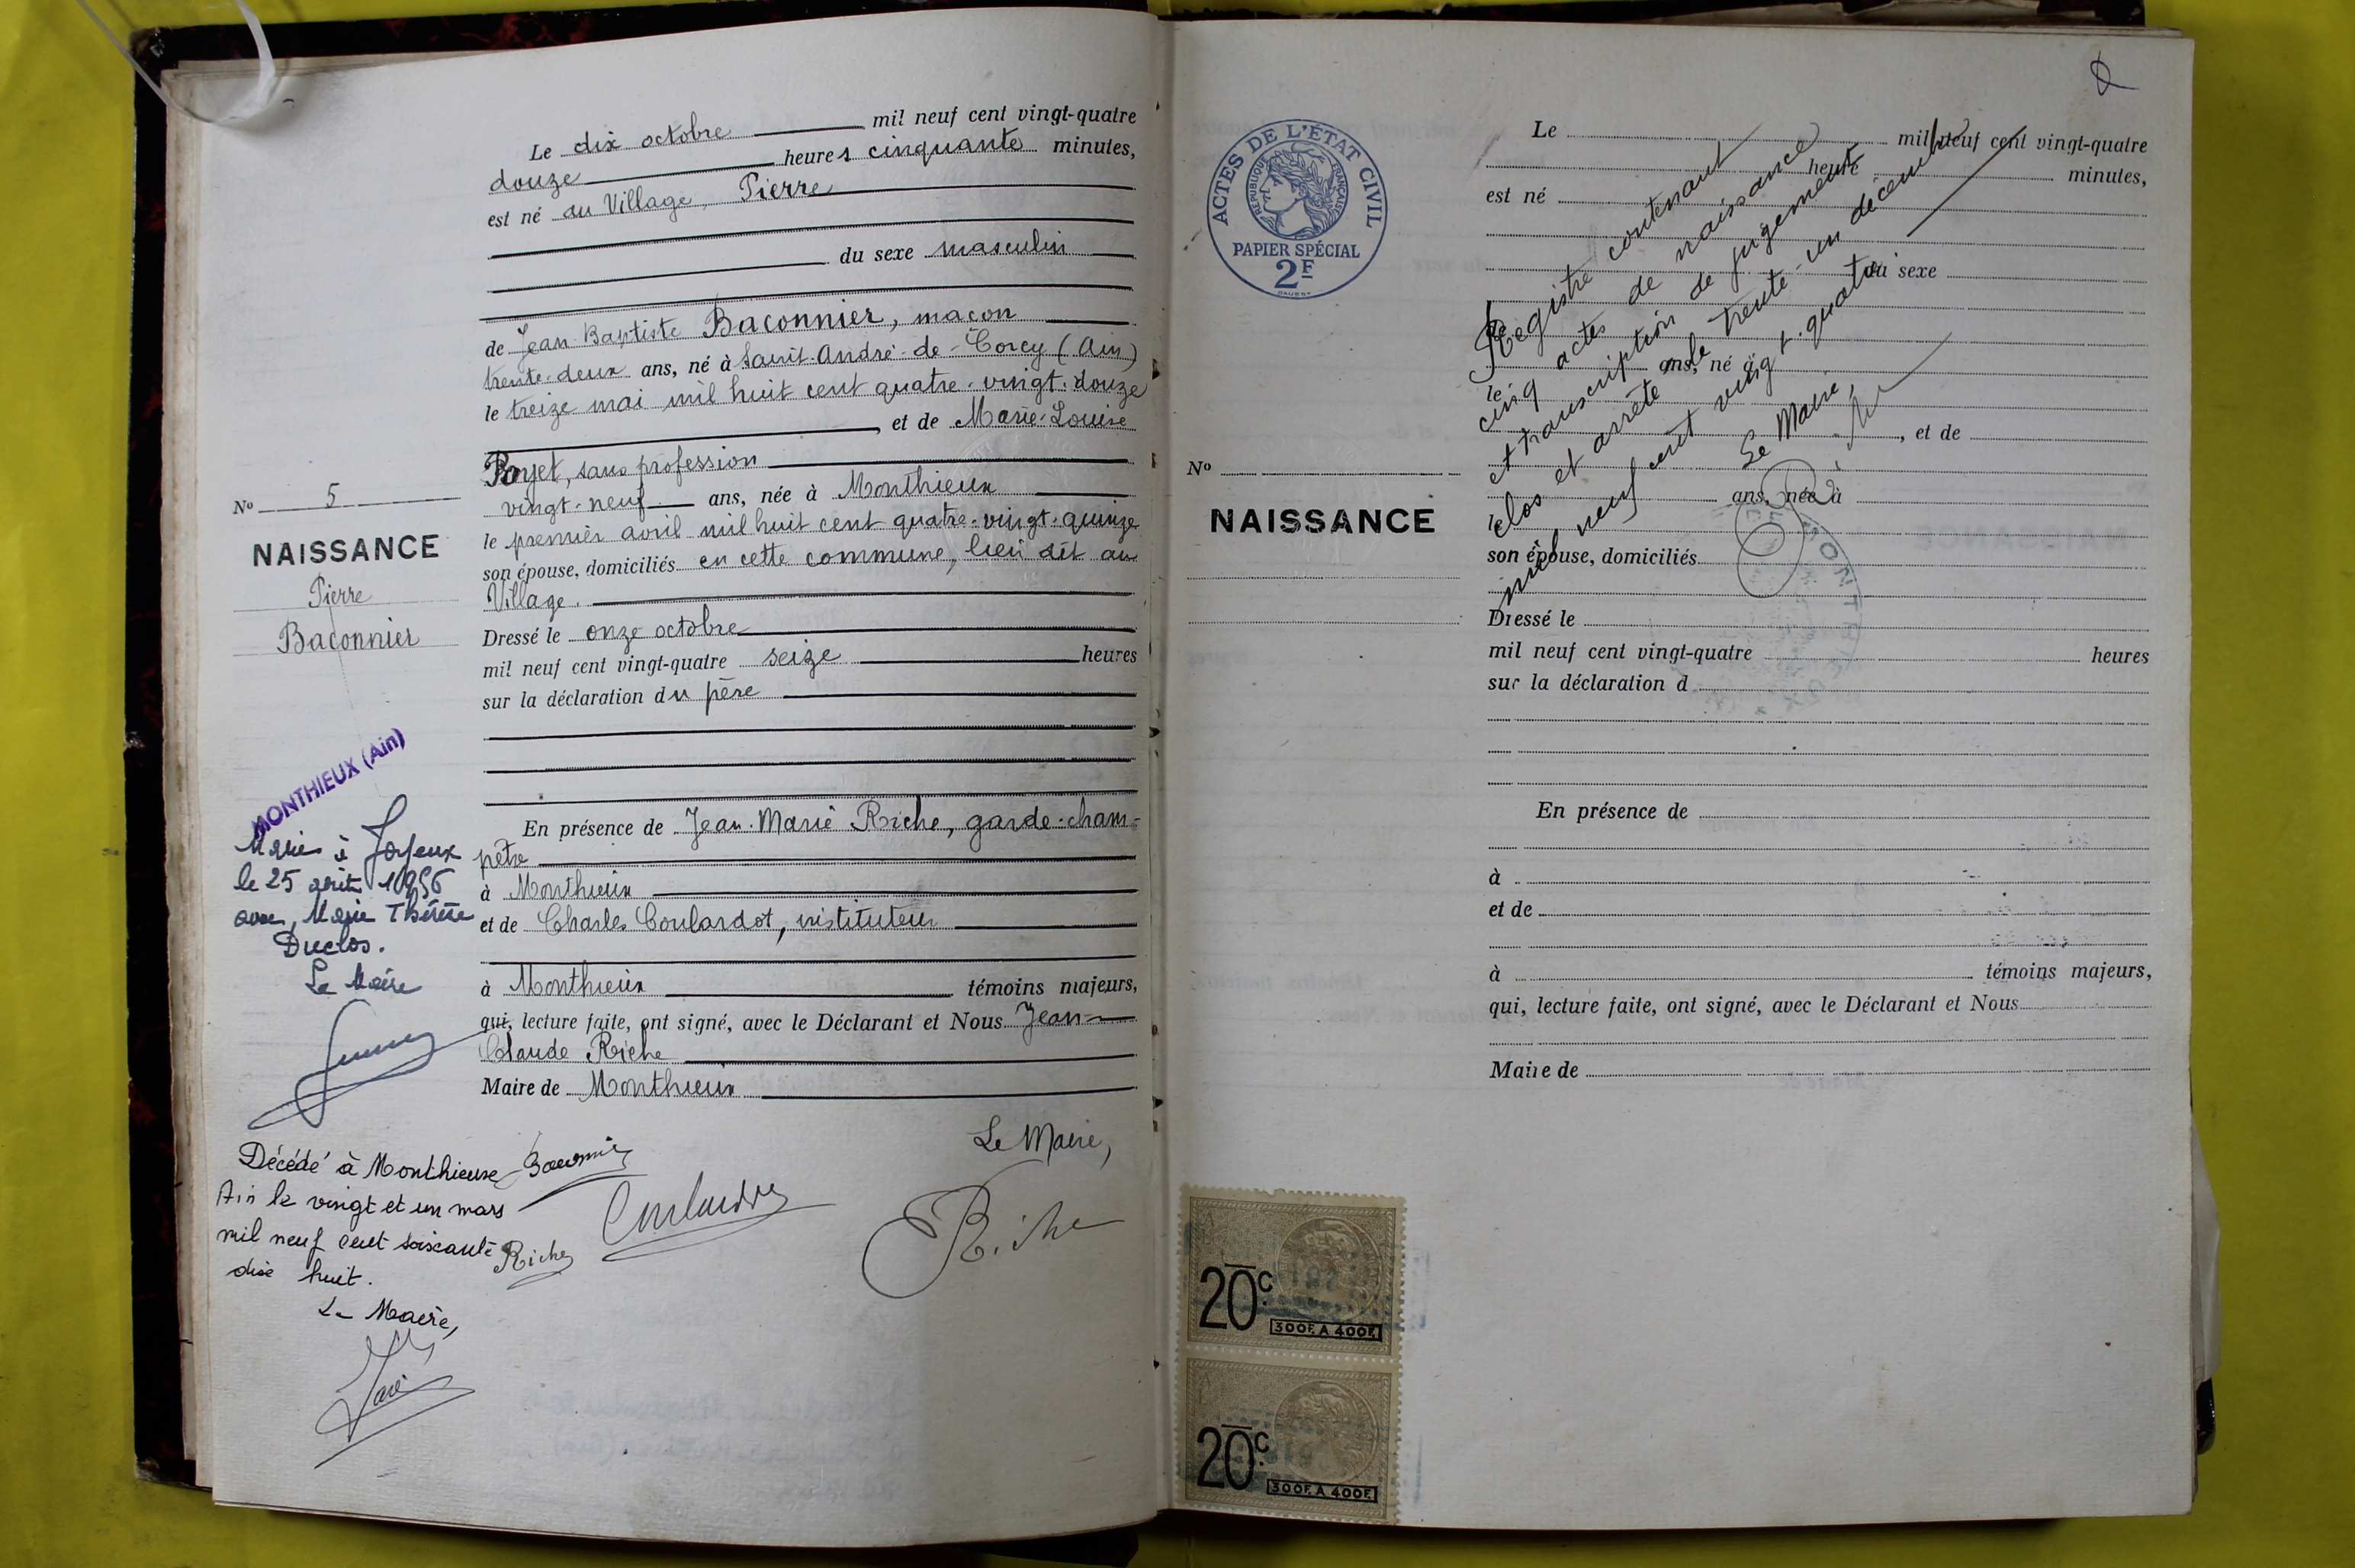 Le dix octobre mil neuf cent vingt-quatre
douze heures cinquante minutes,
est né au Village, Pierre
du sexe masculin
de Jean Baptiste Baconnier, maçon
trente-deux ans, né à Saint-André-de-Corcy (Ain)
le treize mai mil huit cent quatre-vingt-douze
, et de Marie-Louise
Poyet, sans profession
vingt-neuf ans, née à Monthieux
le premier avril mil huit cent quatre-vingt-quinze
son épouse, domiciliés en cette commune, lieu dit au
Village.
Dressé le onze octobre
mil neuf cent vingt-quatre seize heures
sur la déclaration du père
En présence de Jean-Marie Riche, garde-cham-
pêtre
à Monthieux
et de Charles Coulardot, instituteur
à Monthieux témoins majeurs,
qui, lecture faite, ont signé, avec le Déclarant et Nous Jean-
Claude Riche
Maire de Monthieux
Le Maire,
Baconnier
Coulardot
Riche
Riche
No 5
NAISSANCE
Pierre
Baconnier
MONTHIEUX (Ain)
Marié à Joyeux
le 25 août 1956
avec Marie Thérèse
Duclos.
Le Maire
Décédé à Monthieux
Ain le vingt et un mars
mil neuf cent soixante
dix huit.
Le Maire,
ACTES DE L'ÉTAT CIVIL
RÉPUBLIQUE FRANÇAISE
PAPIER SPÉCIAL
2F
No
NAISSANCE
Le mil neuf cent vingt-quatre
heure minutes,
est né
du sexe
de
ans, né à
le
, et de
ans, née à
le
son épouse, domiciliés
Dressé le
mil neuf cent vingt-quatre heures
sur la déclaration d
En présence de
à
et de
à témoins majeurs,
qui, lecture faite, ont signé, avec le Déclarant et Nous
Maire de
Registre contenant
cinq actes de naissance
et transcription de jugement
clos et arrêté le trente-un décembre
mil neuf cent vingt-quatre
Le Maire,
20c
300F. A 400F.
20c
300F. A 400F.